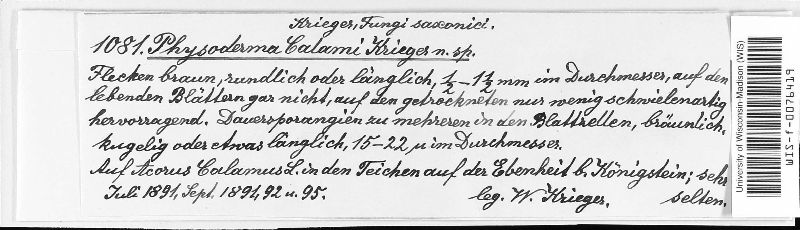 Krieger, Fungi saxonici.
1081. Physoderma Calami Krieger n. sp.
Flecken braun, rundlich oder länglich, ½–1½ mm im Durchmesser, auf den
lebenden Blättern gar nicht, auf den getrockneten nur wenig schwielenartig
hervorragend. Dauersporangien zu mehreren in den Blattzellen, bräunlich,
kugelig oder etwas länglich, 15–22 µ im Durchmesser.
Auf Acorus Calamus L. in den Teichen auf der Ebenheit b. Königstein; sehr
Juli 1891, Sept. 1891, 92 u. 95. leg. W. Krieger. selten.
University of Wisconsin-Madison (WIS)
WIS-f-0076419